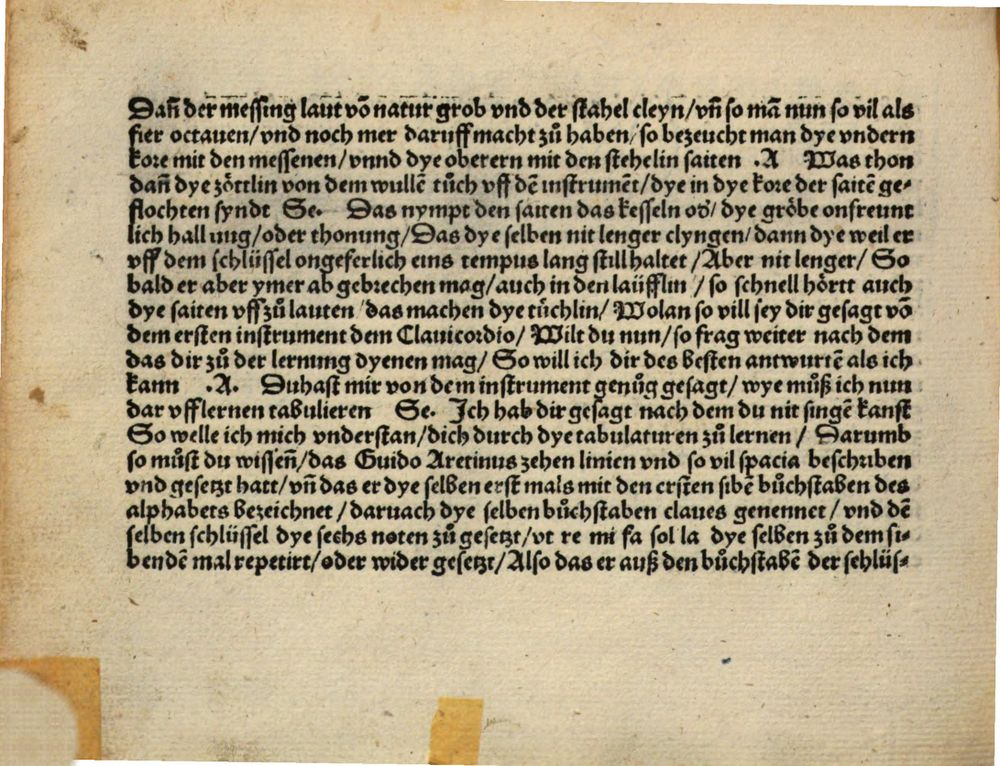 Dañ der messing laut võ natur grob vnd der stahel cleyn/vñ so mã nun so vil als
fier octauen/vnd noch mer daruff macht zů haben/so bezeucht man dye vndern
kore mit den messenen/vnnd dye oberern mit den stehelin saiten .A Was thon
dañ dye zöttlin von dem wullẽ tůch vff dẽ instrumẽt/dye in dye kore der saitẽ ge⸗
flochten syndt Se. Das nympt den saiten das kesseln od'/dye gröbe onfreunt
lich hall ung/oder thonung/Das dye selben nit lenger clyngen/dann dye weil er
vff dem schlüssel ongeferlich eins tempus lang still haltet/Aber nit lenger/So
bald er aber ymer ab gebrechen mag/auch in den laüfflin/so schnell hörtt auch
dye saiten vff zů lauten/das machen dye tüchlin/Wolan so vill sey dir gesagt võ
dem ersten instrument dem Clauicordio/Wilt du nun/so frag weiter nach dem
das dir zů der lernung dyenen mag/So will ich dir des besten antwurtẽ als ich
kann .A. Du hast mir von dem instrument genůg gesagt/wye můß ich nun
dar vff lernen tabulieren Se. Ich hab dir gesagt nach dem du nit singẽ kanst
So welle ich mich vnderstan/dich durch dye tabulaturen zů lernen/Darumb
so můst du wisseñ/das Guido Aretinus zehen linien vnd so vil spacia beschriben
vnd gesetzt hatt/vñ das er dye selben erst mals mit den ersten sibẽ bůchstaben des
alphabets bezeichnet/daruach dye selben bůchstaben claues genennet/vnd dẽ
selben schlüssel dye sechs noten zů gesetzt/vt re mi fa sol la dye selben zů dem si⸗
bendẽ mal repetirt/oder wider gesetzt/Also das er auß den bůchstabẽ der schlüs⸗